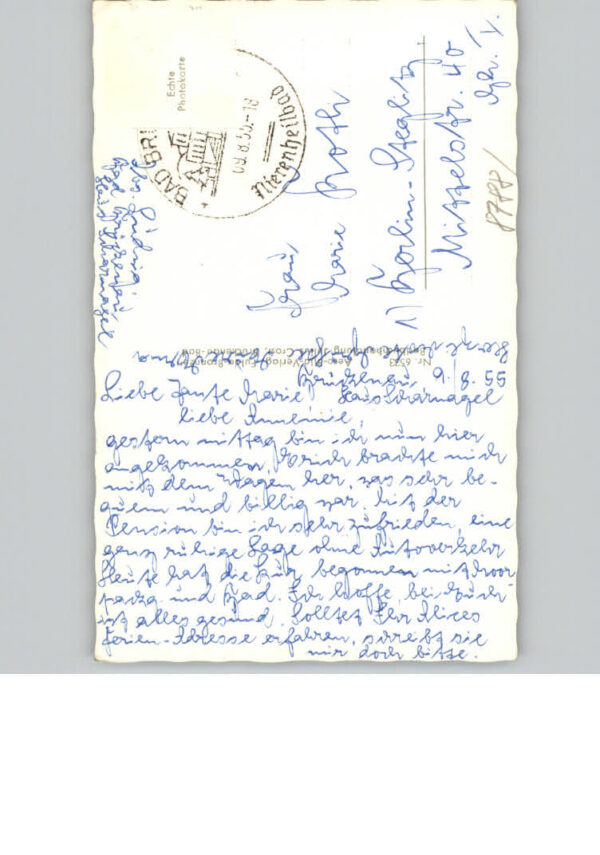 Echte
Photokarte
BAD BR
09.8.55.-18
Nierenheilbad
Frau
MarieRoth
1) Berlin-Steglitz
Mittelstr. 40
8788/
Bad Brückenau
Haus Scharnagel
Brückenau 9./8.55
Liebe Tante Marie! Haus Scharnagel
liebe Annemie,
gestern mittag bin ich nun hier
angekommen, Erich brachte mich
mit dem Wagen her, was sehr be-
quem und billig war. Mit der
Pension bin ich sehr zufrieden, eine
ganz ruhige Lage ohne Autoverkehr
Heute hat die Kur begonnen mit
und Bad. Ich hoffe, bei Euch
ist alles gesund. Solltet Ihr Alices
Ferien-Adresse erfahren, schreibt sie
mir doch bitte.